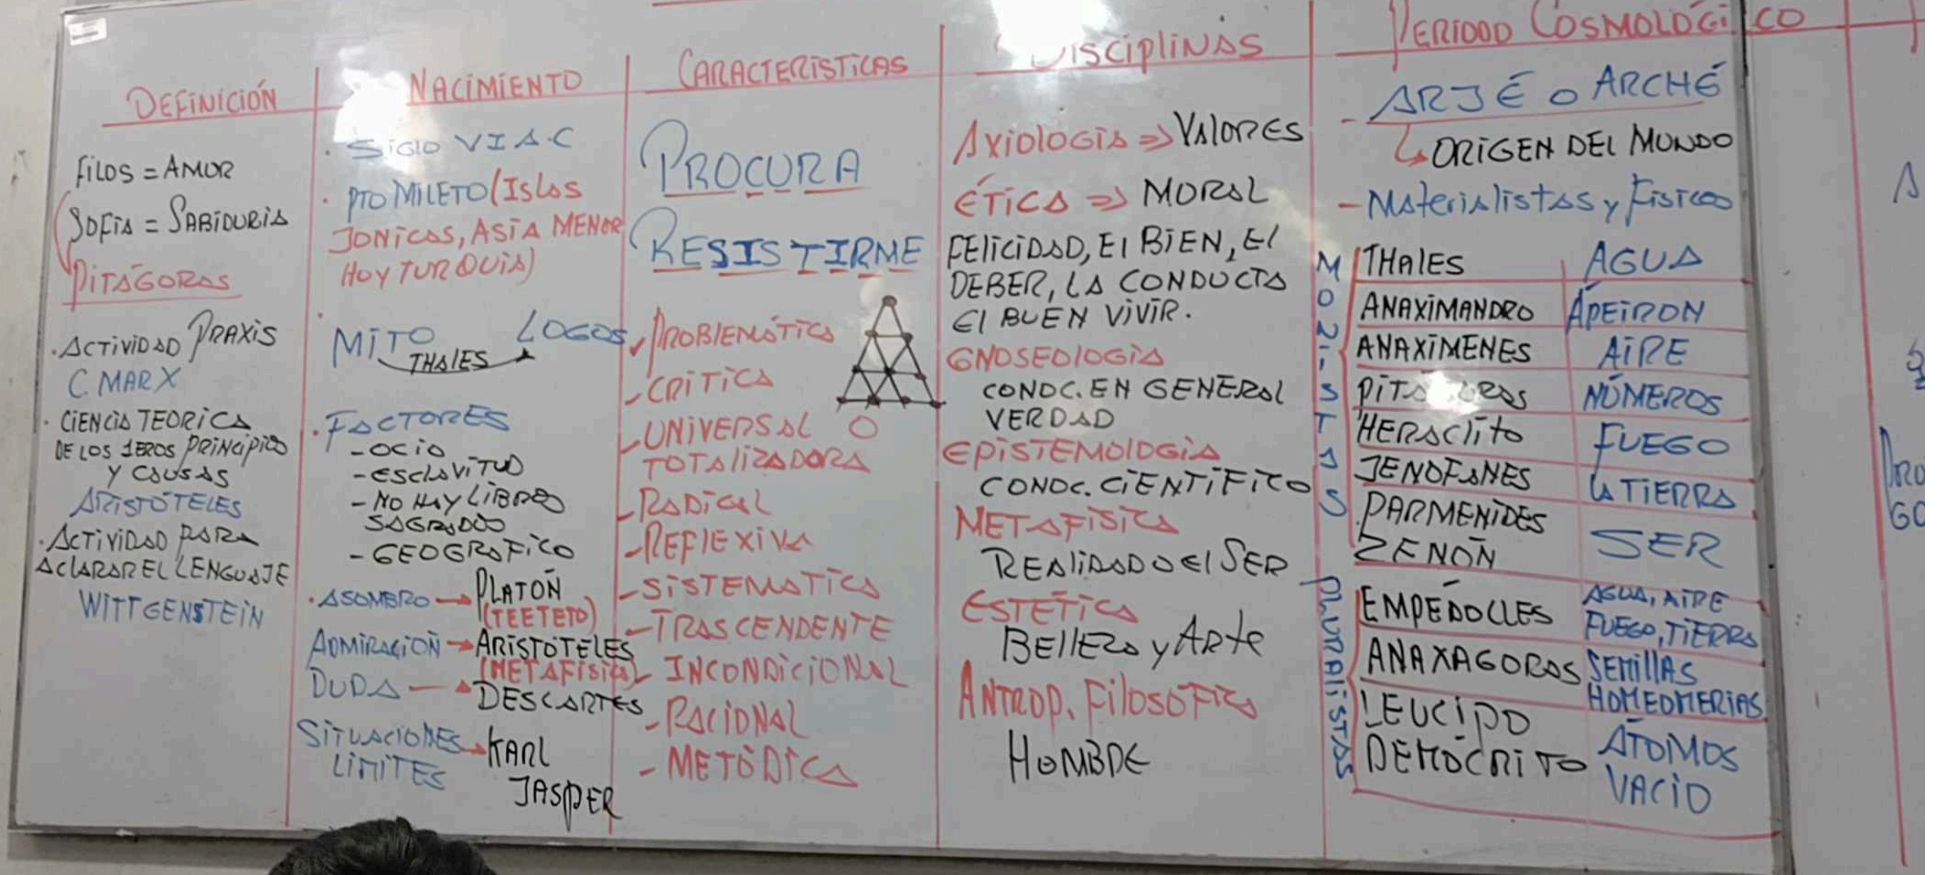 DEFINICIÓN
FILOS = AMOR
SOFIA = SABIDURIA
PITÁGORAS
· ACTIVIDAD PRAXIS
C. MARX
· CIENCIA TEORICA
DE LOS 1EROS PRINCIPIOS
Y CAUSAS
ARISTÓTELES
· ACTIVIDAD PARA
ACLARAR EL LENGUAJE
WITTGENSTEIN
NACIMIENTO
· SIGLO VI A.C
· PTO MILETO (ISLAS
JONICAS, ASIA MENOR
HOY TURQUIA)
· MITO LOGOS
THALES
· FACTORES
- OCIO
- ESCLAVITUD
- NO HAY LIBROS
SAGRADOS
- GEOGRAFICO
· ASOMBRO → PLATÓN
(TEETETO)
ADMIRACIÓN → ARISTÓTELES
(METAFISICA)
DUDA → DESCARTES
SITUACIONES → KARL
LIMITES JASPER
CARACTERISTICAS
PROCURA
RESISTIRME
PROBLEMÁTICA
- CRITICA
- UNIVERSAL O
TOTALIZADORA
- RADICAL
- REFLEXIVA
- SISTEMATICA
- TRASCENDENTE
- INCONDICIONAL
- RACIONAL
- METÓDICA
DISCIPLINAS
AXIOLOGIA ⇒ VALORES
ÉTICA ⇒ MORAL
FELICIDAD, El BIEN, El
DEBER, LA CONDUCTA
El BUEN VIVIR.
GNOSEOLOGIA
CONOC. EN GENERAL
VERDAD
EPISTEMOLOGIA
CONOC. CIENTIFICO
METAFISICA
REALIDAD O El SER
ESTÉTICA
BELLEZA y ARTE
ANTROP. FILOSOFICA
HOMBRE
PERIODO COSMOLÓGICO
- ARJÉ O ARCHÉ
↳ ORIGEN DEL MUNDO
- Materialistas y Fisicos
MONISTAS
THALES AGUA
ANAXIMANDRO ÁPEIRON
ANAXIMENES AIRE
PITAGORAS NÚMEROS
HERACLITO FUEGO
JENOFANES LA TIERRA
PARMENIDES
ZENÓN SER
PLURALISTAS
EMPÉDOCLES AGUA, AIRE
FUEGO, TIERRA
ANAXAGORAS SEMILLAS
HOMEOMERIAS
LEUCIPO ÁTOMOS
DEMÓCRITO VACIO